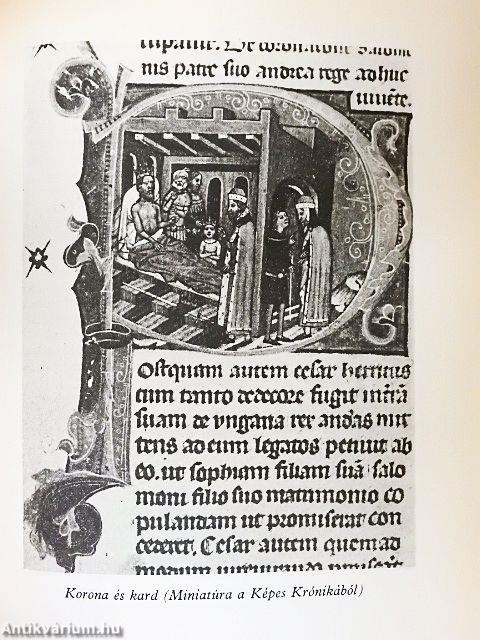 De coronatione Salomo
nis patre suo andrea rege adhuc
uiuēte.
Postquam autem cesar henricus
cum tanto dedecore fugit in trā
suam de vngaria rex andͣas mit
tens ad eum legatos petiuit ab
eo. ut sophiam filiam suā salo
moni filio suo matrimonio co
pulandam ut promiserat con
cederet. Cesar autem quem ad
modum
Korona és kard (Miniatúra a Képes Krónikából)
Antikvárium.hu